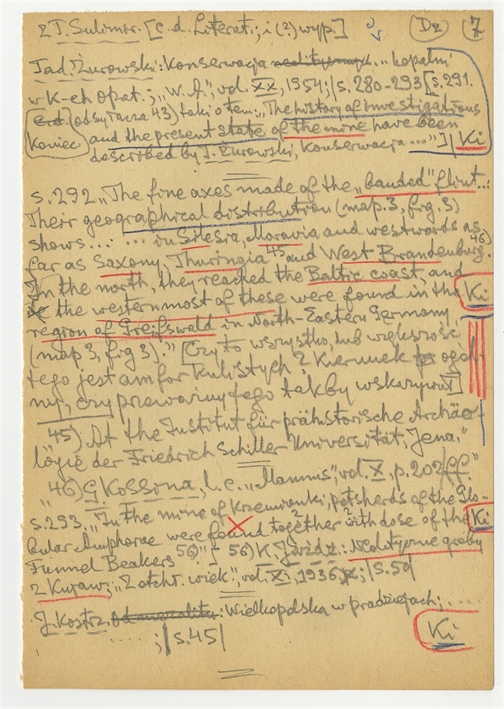 2 T. Sulimir. [c.d. Literat.; i (?) wyp.] (Dz) 7
Jad. Żurowski: Konserwacja neolitycznych... kopalni
w K-ch Opat.; „W.A.", vol. XX, 1954; |s. 280-293 [s. 291.
(odsyłacz 43) taki o tem: „The history of investigations
Koniec and the present state of the mine have been
described by J. Żurowski, Konserwacja...."] | Ki
s. 292 „The fine axes made of the „banded" flint...
Their geographical distribution (map. 3, frg. 3)
shows... ... in Silesia, Moravia and westwards as
far as Saxony, Thuringia 45 and West Brandenburg. 46)
In the north, they reached the Baltic coast, and
the westernmost of these were found in the Ki
region of Greifswald in North-Eastern Germany,
(map 3, frg 3)." [Czy to wszystko, lub większość
tego jest amfor kulistych? Kierunek
ny, czy przeważny tego takby wskazywał]
45) At the Institut für prähistorische Archäo-
logie der Friedrich Schiller Universität, Jena."
"46) G Kossina, l.c. „Mannus" vol. X, p. 202 ff"
s. 293. „In the mine of Krzemionki, potsherds of the Glo-
bular Amphorae were found together with dose of the Ki
Funnel Beakers 56)"; 56) K. Jażdż.: Neolityczne groby
z Kujaw; „Z otchł. wiek." vol. XI, 1936, |s. 50|
J. Kostrz. : Wielkopolska w pradziejach; ....
.....; |s. 45| Ki